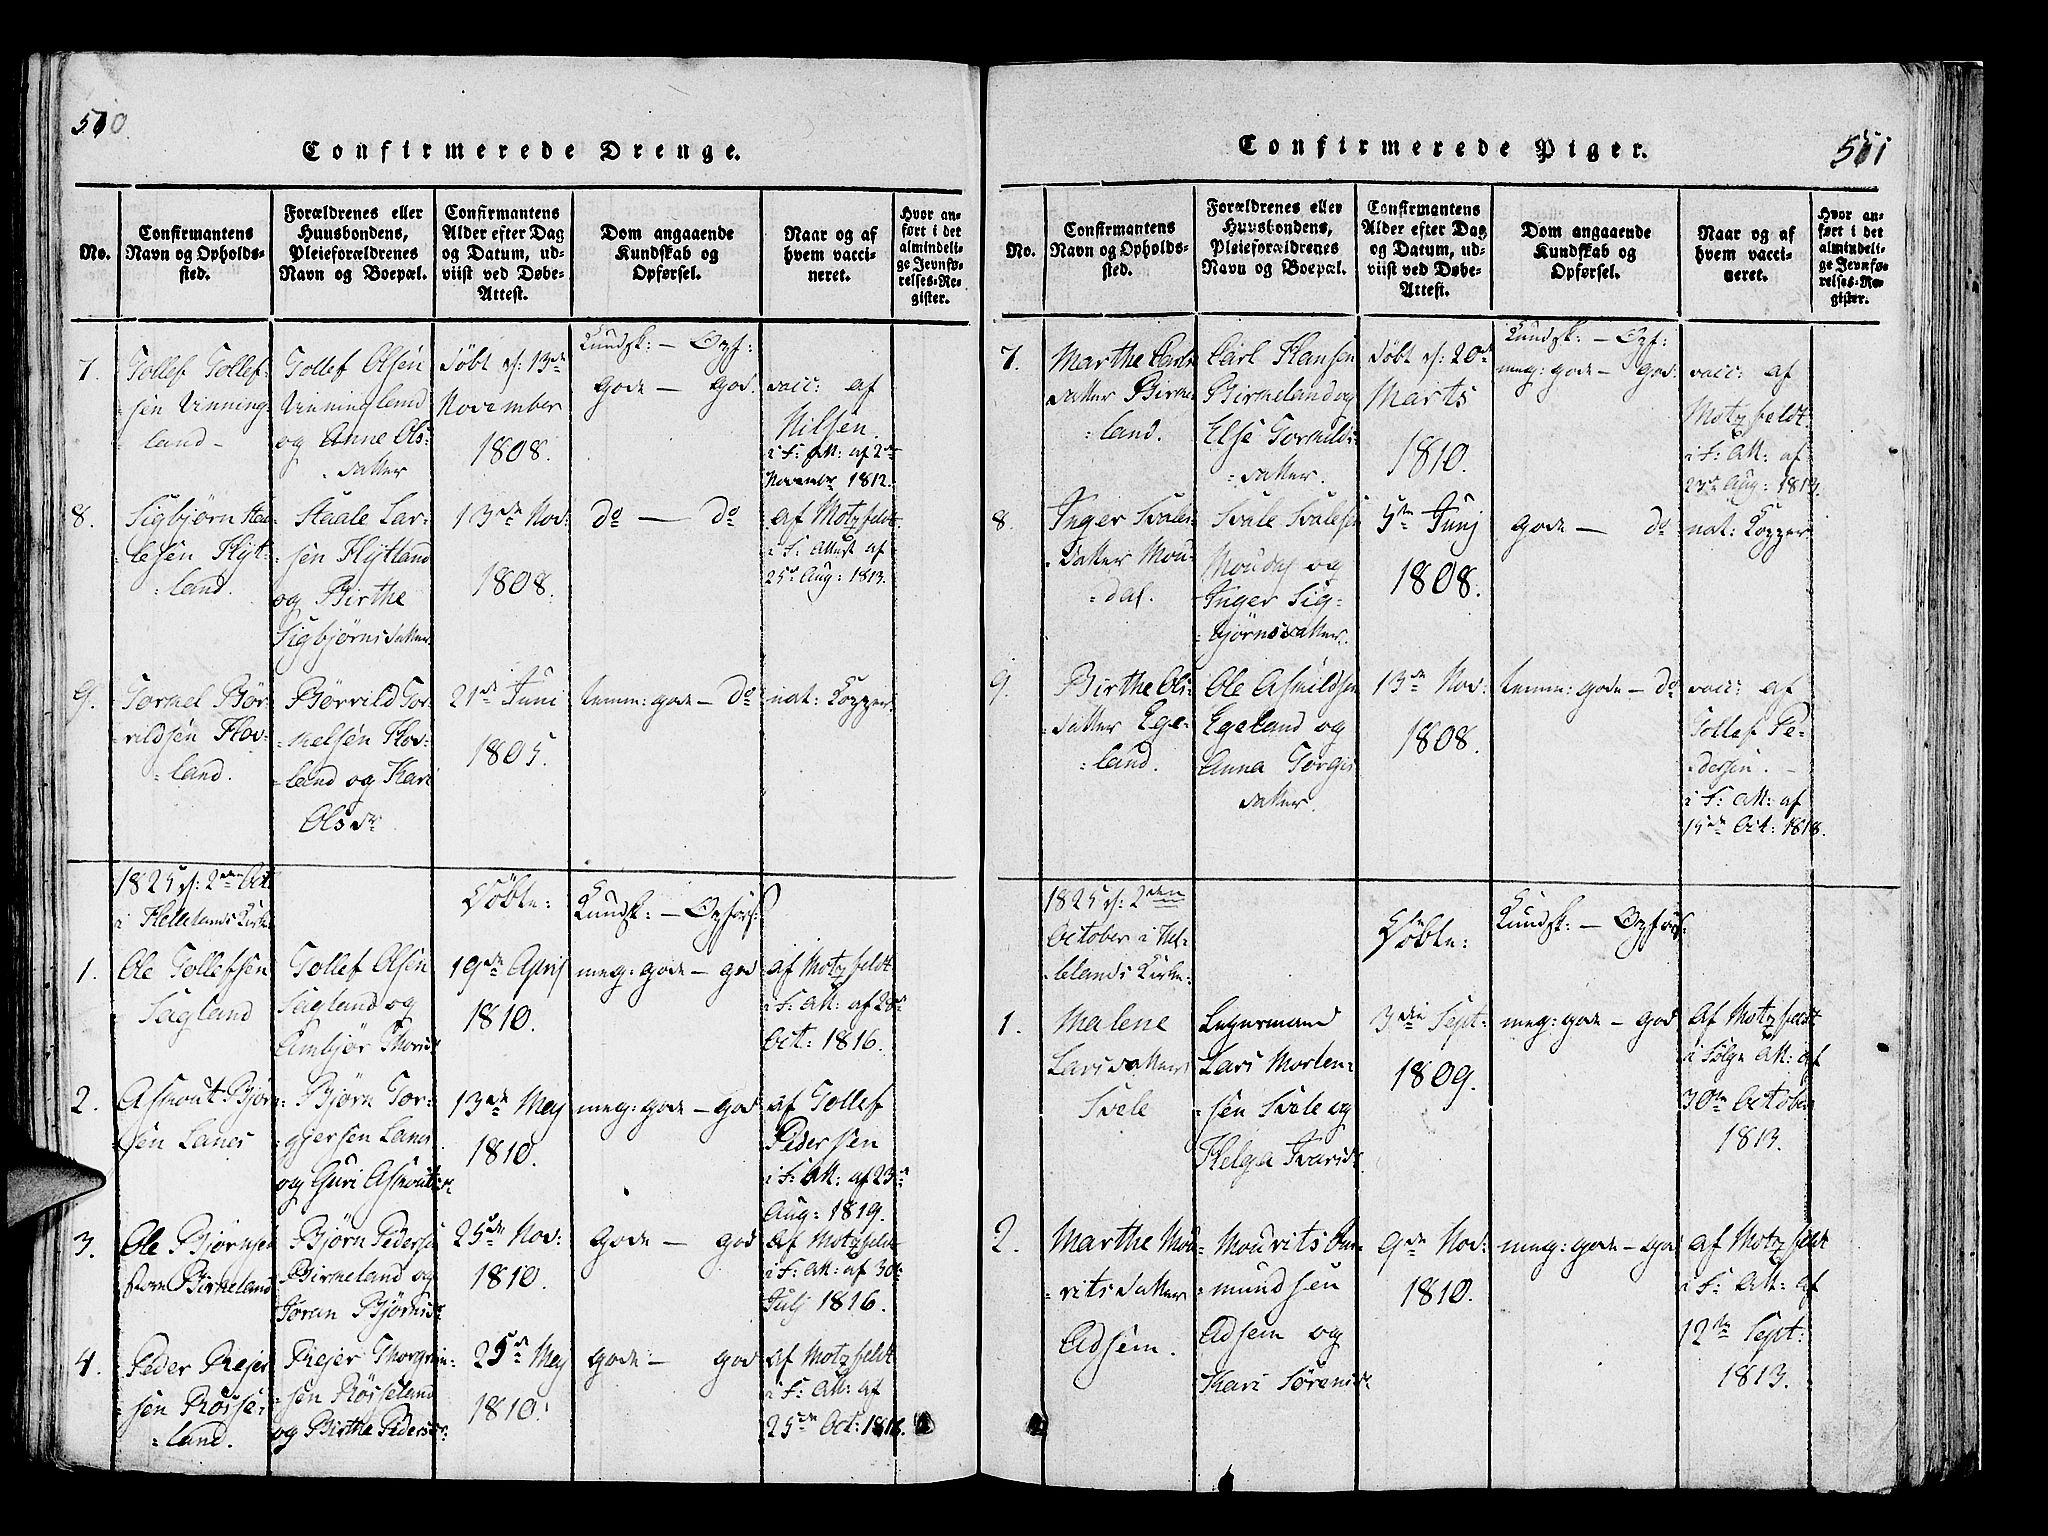 510.
Confirmerede Drenge.
No.
Confirmantens
Navn og Opholds-
sted.
Forældrenes eller
Huusbondens,
Pleieforældrenes
Navn og Boepæl.
Confirmantens
Alder efter Dag
og Datum, ud-
viist ved Døbe-
Attest.
Dom angaaende
Kundskab og
Opførsel.
Naar og af
hvem vacci-
neret.
Hvor an-
ført i det
almindeli-
ge Jevnfø-
relses-Re-
gister.
7.
Tollef Tollef-
sen Vinning-
land
Tollef Olsen
Vinningland
og Anne Ols-
datter
Døbt d: 13de
November
1808.
Kundsk: — Opf:
gode — god.
vacc: af
Nilsen.
i F: Att: af 2de
November 1812.
8.
Sigbjørn Staa-
lesen Hyt-
land.
Staale Lar-
sen Hytland
og Birthe
Sigbjørnsdatter
13de Nov:
1808.
do — do
af Motzfeldt
i F: Attest af
25de Aug: 1813.
9.
Tormel Bør-
vildsen Hov-
land.
Børvild Tor-
melsen Hov-
land og Kari
Olsdr
21de Juni
1805.
temm: gode — do
nat: Kopper
1825 d: 2den Oct.
i Hellelands Kirke
Døbte:
Kundsk: — Opførs:
1.
Ole Tollefsen
Sagland
Tollef Olsen
Sagland og
19de April
1810.
meg: gode — god
af Motzfeldt
i F: Att: af 28de
Oct: 1816.
2.
Asnout Bjørn-
sen Lanes
Bjørn Tor-
gjersen Lanes
og Guri Asnoutsdr
13de Mej
1810.
meg: gode — god
af Tollef
Pedersen
i F: Att: af 23de
Aug: 1819.
3.
Ole Bjørnsen
store Birkeland
Bjørn Pedersen
Birkeland og
Joran Bjørnsdr
25de Nov:
1810.
gode — god
af Motzfeldt
i F: Att: af 30te
Julj 1816.
4.
Peder Rejer-
sen Røsse-
land.
Rejer Thorgrim-
sen Røsseland
og Birthe Pedersdr
25de Mej
1810.
gode — god
af Motzfeldt
i F: Att: af
25de Oct: 1816.
511
Confirmerede Piger.
No.
Confirmantens
Navn og Opholds-
sted.
Forældrenes eller
Huusbondens,
Pleieforældrenes
Navn og Boepæl.
Confirmantens
Alder efter Dag
og Datum, ud-
viist ved Døbe-
Attest.
Dom angaaende
Kundskab og
Opførsel.
Naar og af
hvem vacci-
neret.
Hvor an-
ført i det
almindeli-
ge Jevnfø-
relses-Re-
gister.
7.
Marthe Carls-
datter Birke-
land.
Carl Hansen
Birkeland og
Else Tormilds-
datter.
Døbt d: 20de
Marts
1810.
Kundsk: — Opf:
meg: gode — god.
vacc: af
Motzfeldt
i F: Att: af
23de Aug: 1813.
8.
Inger Svales-
datter Mou-
dal.
Svale Svalesen
Moudal og
Inger Sig-
bjørnsdatter.
5te Junj
1808.
gode — do
nat: Kopper
9.
Birthe Ols-
datter Ege-
land.
Ole Asmildsen
Egeland og
Anna Torgis-
datter.
13de Nov:
1808.
temm: gode — do
vacc: af
Tollef Pe-
dersen.
i F: Att: af
15de Oct: 1818.
1825 d: 2den
October i Hel-
lelands Kirke.
Døbte:
Kundsk: — Opførs:
1.
Malene
Larsdatter
Svele
Legesmand
Lars Morten-
sen Svele og
Helga Ivarsdr
3die Sept:
1809.
meg: gode — god
af Motzfeldt
i Følge Att: af
30te October
1813.
2.
Marthe Mou-
ritsdatter
Adsem.
Mourits
mundsen
Adsem og
Kari Sørensdr
9de Nov:
1810.
meg: gode — god
af Motzfeldt
i F: Att: af
12te Sept:
1813.